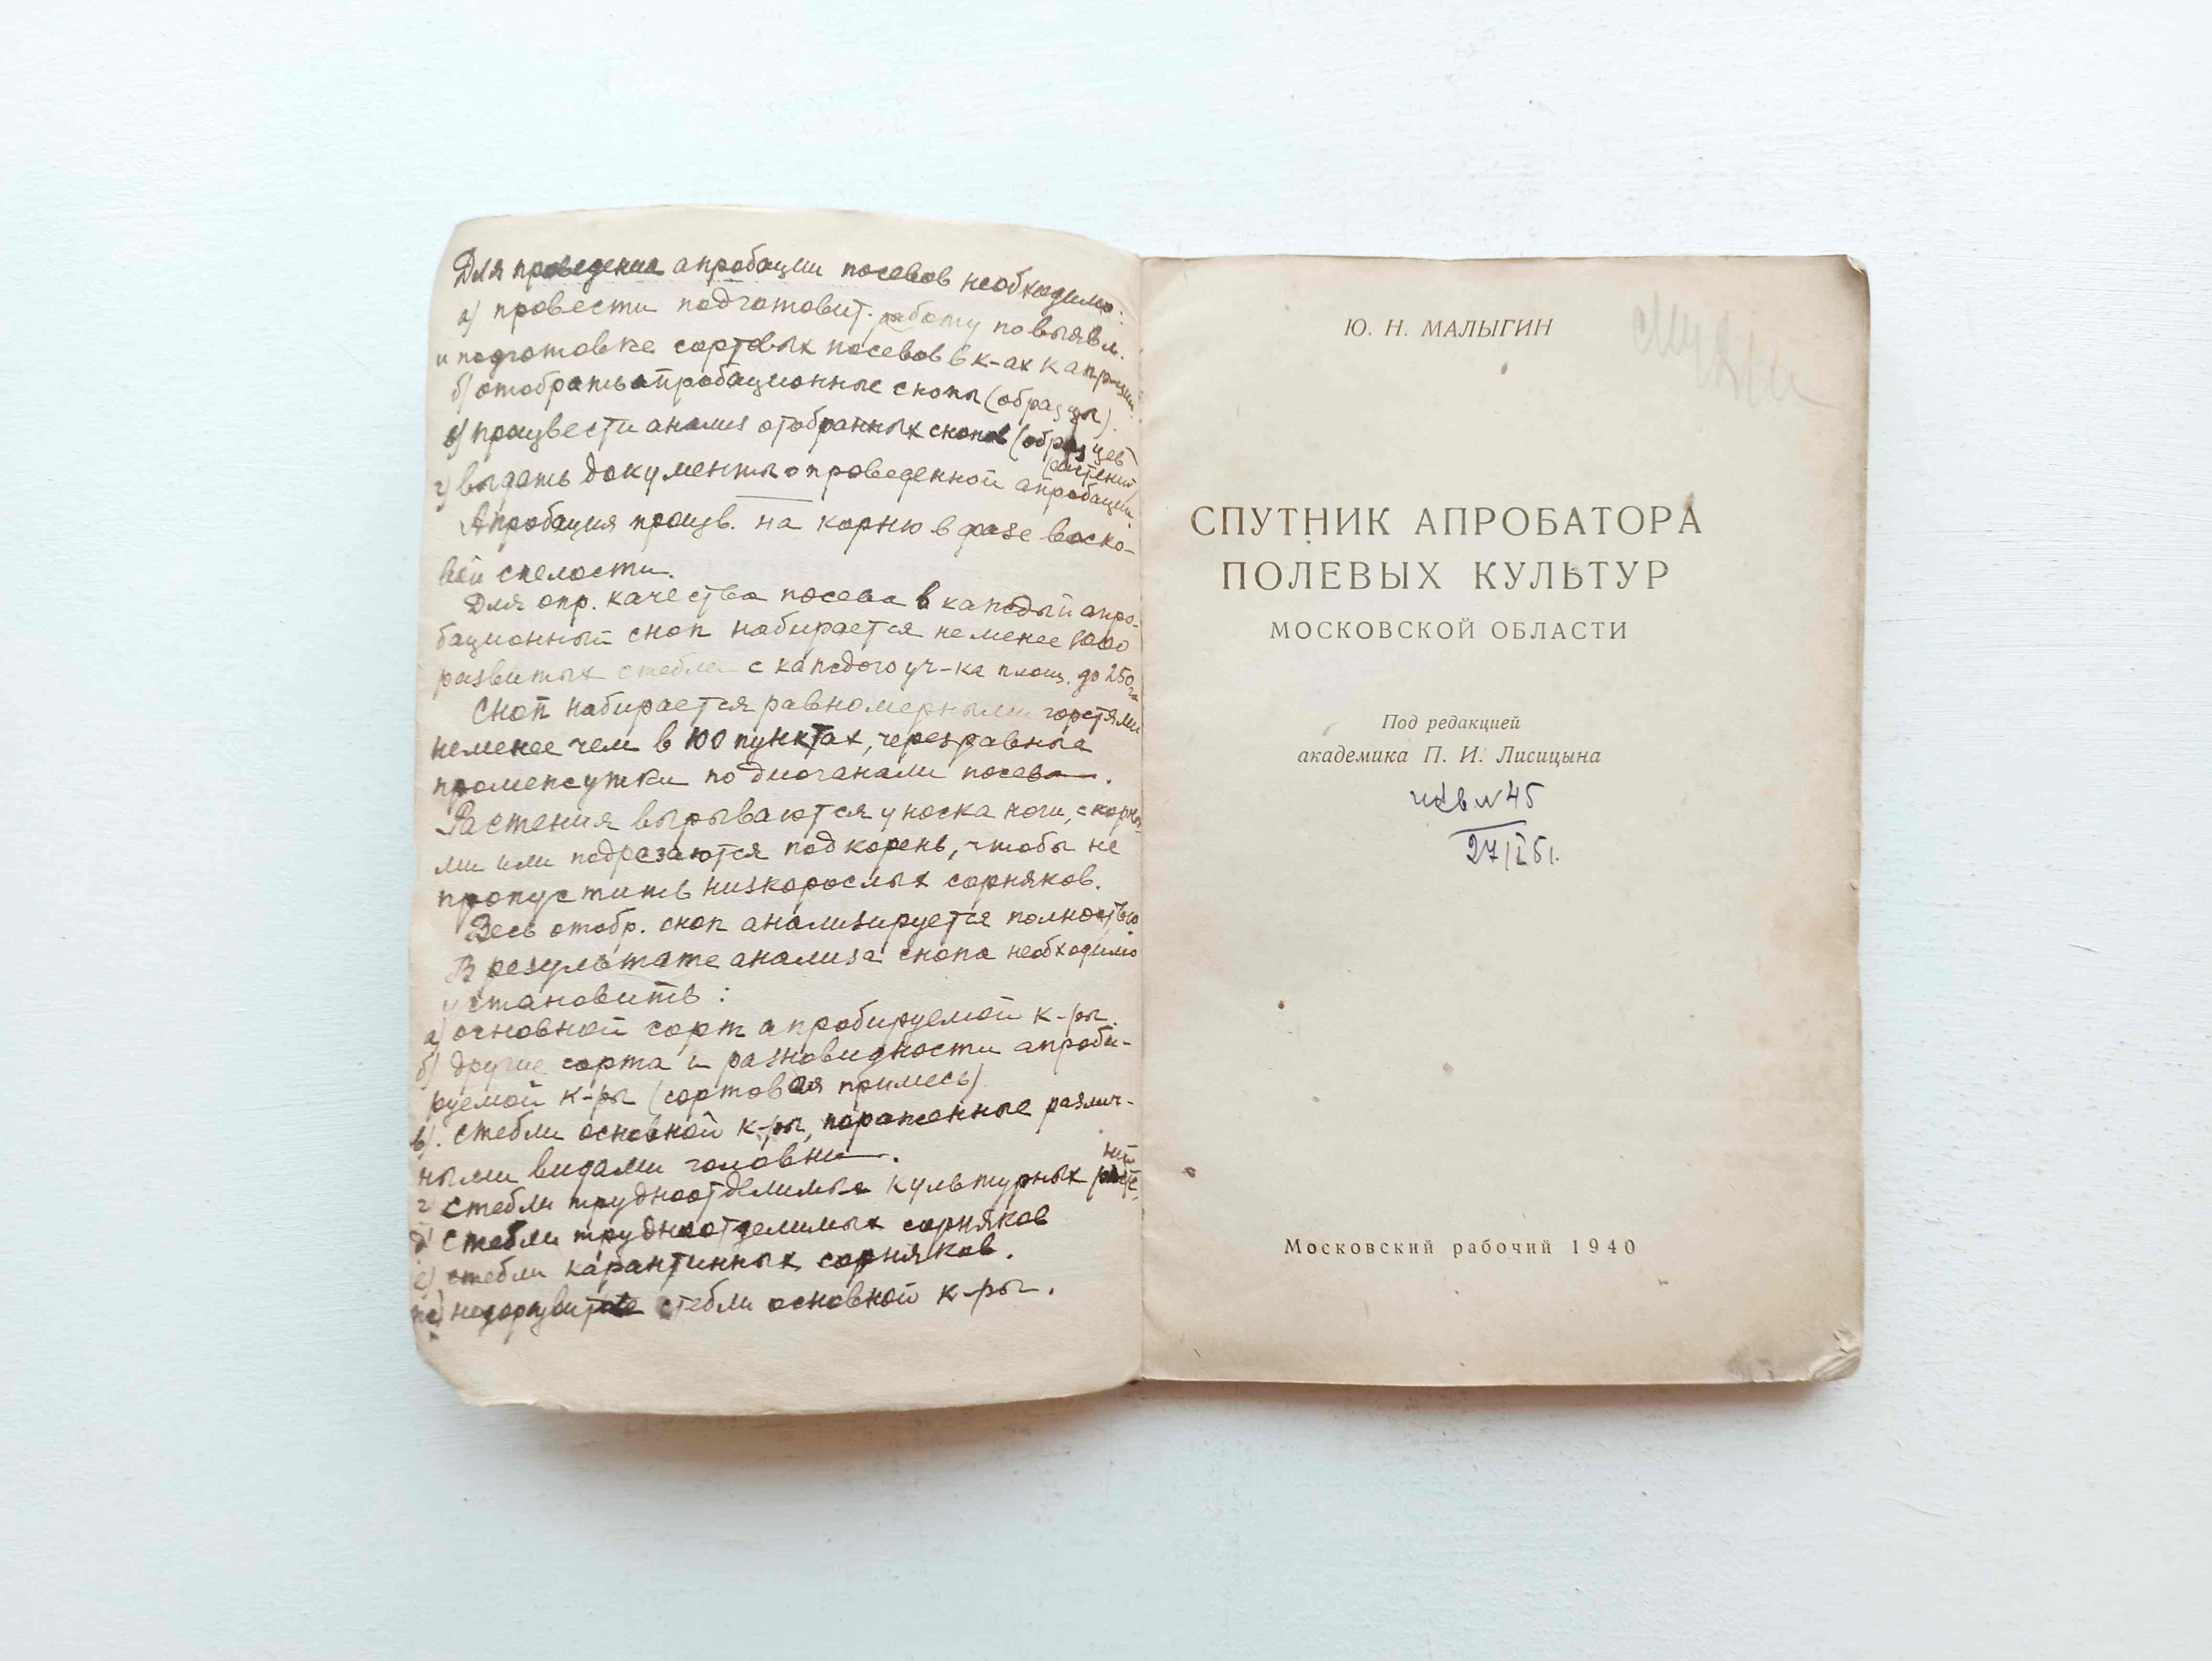 Для проведения апробации посевов необходимо:
а) провести подготовит. работу по выявл.
и подготовке сортовых посевов в к-ах к апр-ции.
б) отобрать апробационные снопы (образцы).
в) произвести анализ отобранных снопов (образцев
растений)
г) выдать документы о проведенной апробации.
Апробация произв. на корню в фазе воско-
вой спелости.
Для опр. качества посева в каждый апро-
бационный сноп набирается не менее
развитых стеблей с каждого уч-ка площ. до 250 га
Сноп набирается равномерными горстями
не менее чем в 100 пунктах, через равные
промежутки по диоганали посева.
Растения вырываются у носка ноги, с корня-
ми или подрезаются под корень, чтобы не
пропустить низкорослых сорняков.
Весь отобр. сноп анализируется полностью
В результате анализа снопа необходимо
установить:
а) основной сорт апробируемой к-ры.
б) другие сорта и разновидности апроби-
руемой к-ры (сортовая примесь).
в). стебли основной к-ры, пораженные различ-
ными видами головни.
г) стебли трудноотделимых культурных расте-
ний
д) стебли трудноотделимых сорняков
е) стебли карантинных сорняков.
ж) недоразвитые стебли основной к-ры.
Ю. Н. МАЛЫГИН
СПУТНИК АПРОБАТОРА
ПОЛЕВЫХ КУЛЬТУР
МОСКОВСКОЙ ОБЛАСТИ
Под редакцией
академика П. И. Лисицына
45
27/I 51.
Московский рабочий 1940